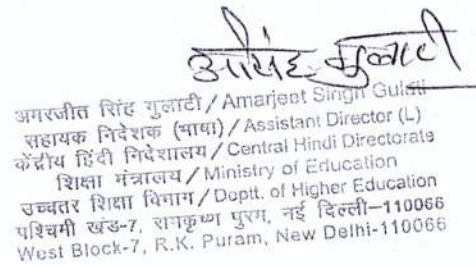 गुलाटी
अमरजीत सिंह गुलाटी / Amarjeet Singh Gulati
सहायक निदेशक (भाषा) / Assistant Director (L)
केंद्रीय हिंदी निदेशालय / Central Hindi Directorate
शिक्षा मंत्रालय / Ministry of Education
उच्चतर शिक्षा विभाग / Deptt. of Higher Education
पश्चिमी खंड-7, रामकृष्ण पुरम, नई दिल्ली-110066
West Block-7, R.K. Puram, New Delhi-110066